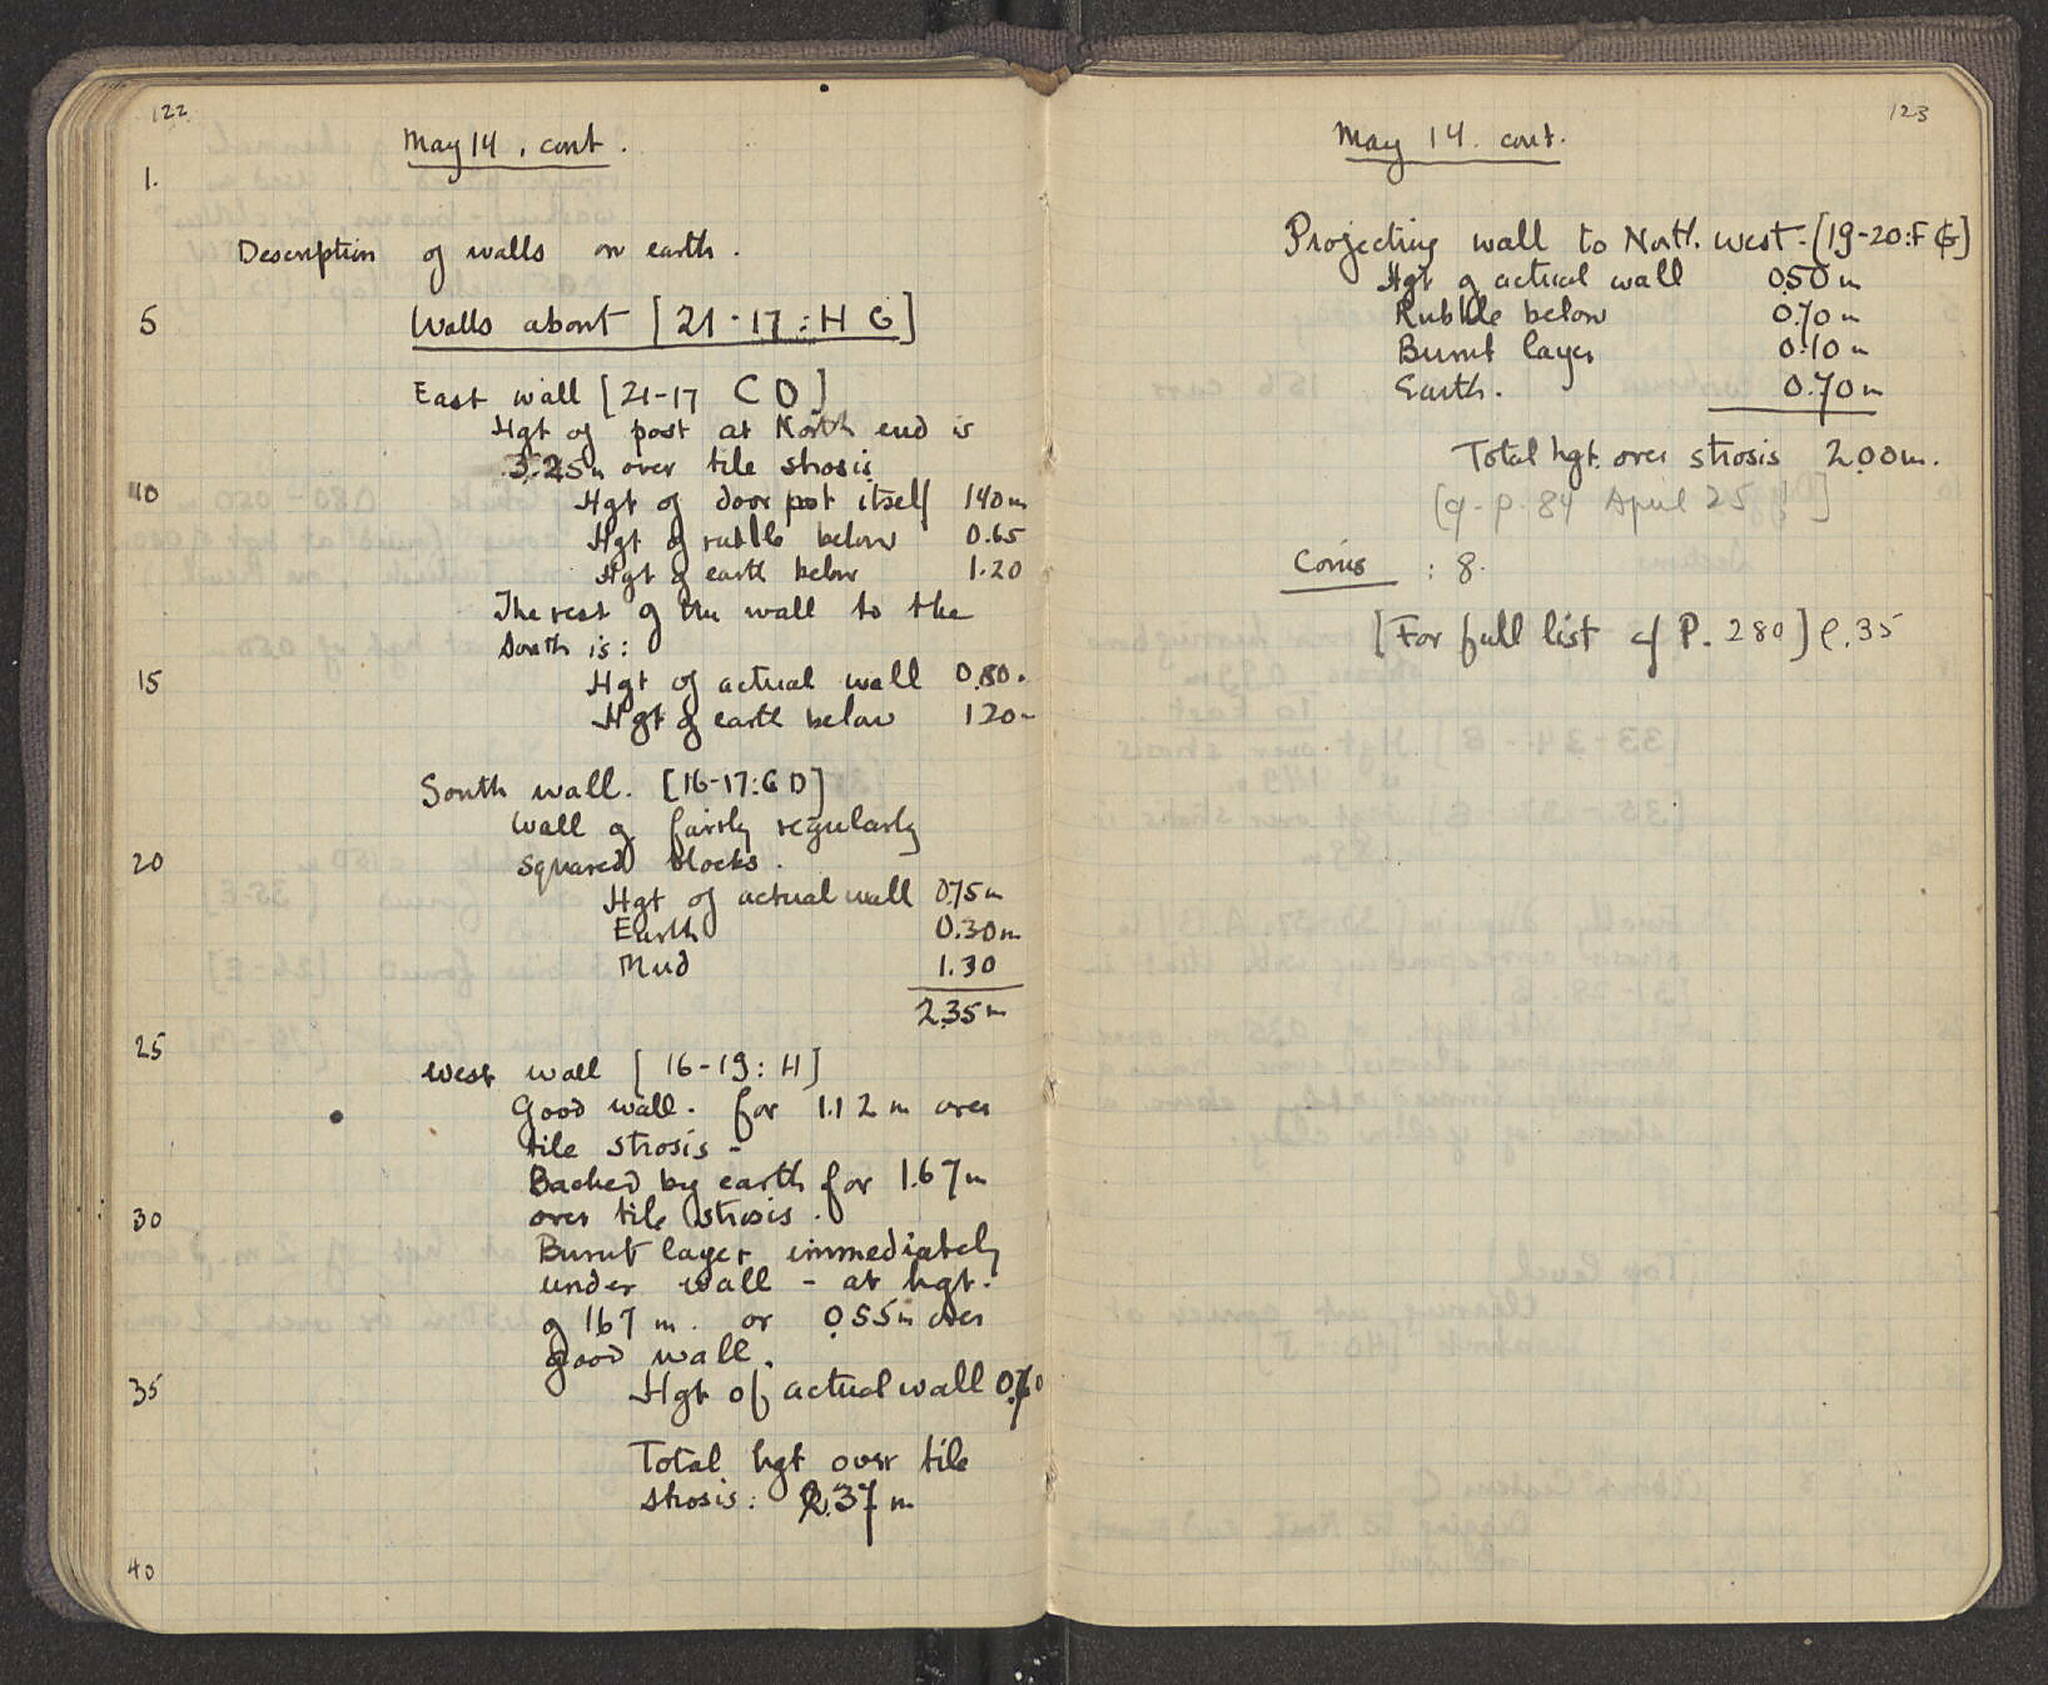 122
May 14. cont.
1.
Description of walls on earth.
5 Walls about [21-17:H G]
East wall [21-17 C D]
Hgt of post at North end is
3.25m over tile strosis
10 Hgt of door post itself 140m
Hgt of rubble below 0.65
Hgt of earth below 1.20
The rest of the wall to the
South is:
15 Hgt of actual wall 0.80.
Hgt of earth below 120m
South wall. [16-17:G D]
Wall of fairly regularly
20 squared blocks.
Hgt of actual wall 0.75m
Earth 0.30m
Mud 1.30
2.35m
25
West wall [16-19: H]
Good wall. for 1.12 m over
tile strosis -
Backed by earth for 1.67m
30 over tile strosis.
Burnt layer immediately
under wall - at hgt.
of 167 m. or 0.55m over
good wall.
35 Hgt of actual wall 0.70
Total hgt over tile
strosis: 2.37 m
40
123
May 14. cont.
Projecting wall to North. West. [19-20:F G]
Hgt of actual wall 0.50m
Rubble below 0.70m
Burnt layer 0.10m
Earth. 0.70m
Total hgt. over strosis 2.00m.
[cf. p. 84 April 25]
Coins : 8.
[For full list cf P. 280] l.35